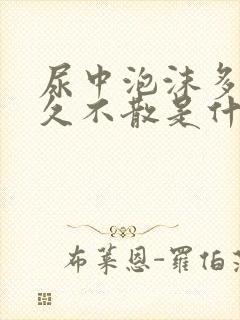 尿中泡沫多
久不散是什
布莱恩-羅伯